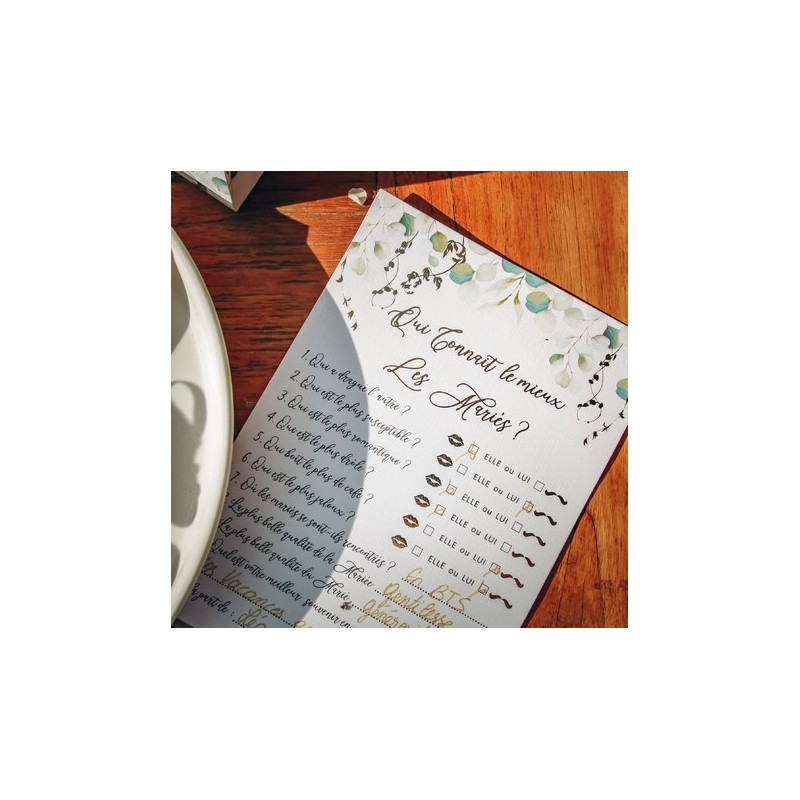 Qui Connait le mieux
Les Mariés ?
1. Qui a dragué l'autre ?
2. Qui est le plus susceptible ?
3. Qui est le plus romantique ?
4. Qui est le plus drôle ?
5. Qui boit le plus de café ?
6. Qui est le plus jaloux ?
ELLE ou LUI
ELLE ou LUI
ELLE ou LUI
ELLE ou LUI
ELLE ou LUI
ELLE ou LUI
7. Où les mariés se sont-ils rencontrés ? En BTS
La plus belle qualité de la Mariée gentillesse
La plus belle qualité du Marié générei
Quel est votre meilleur souvenir en
es Vacances
la part de :